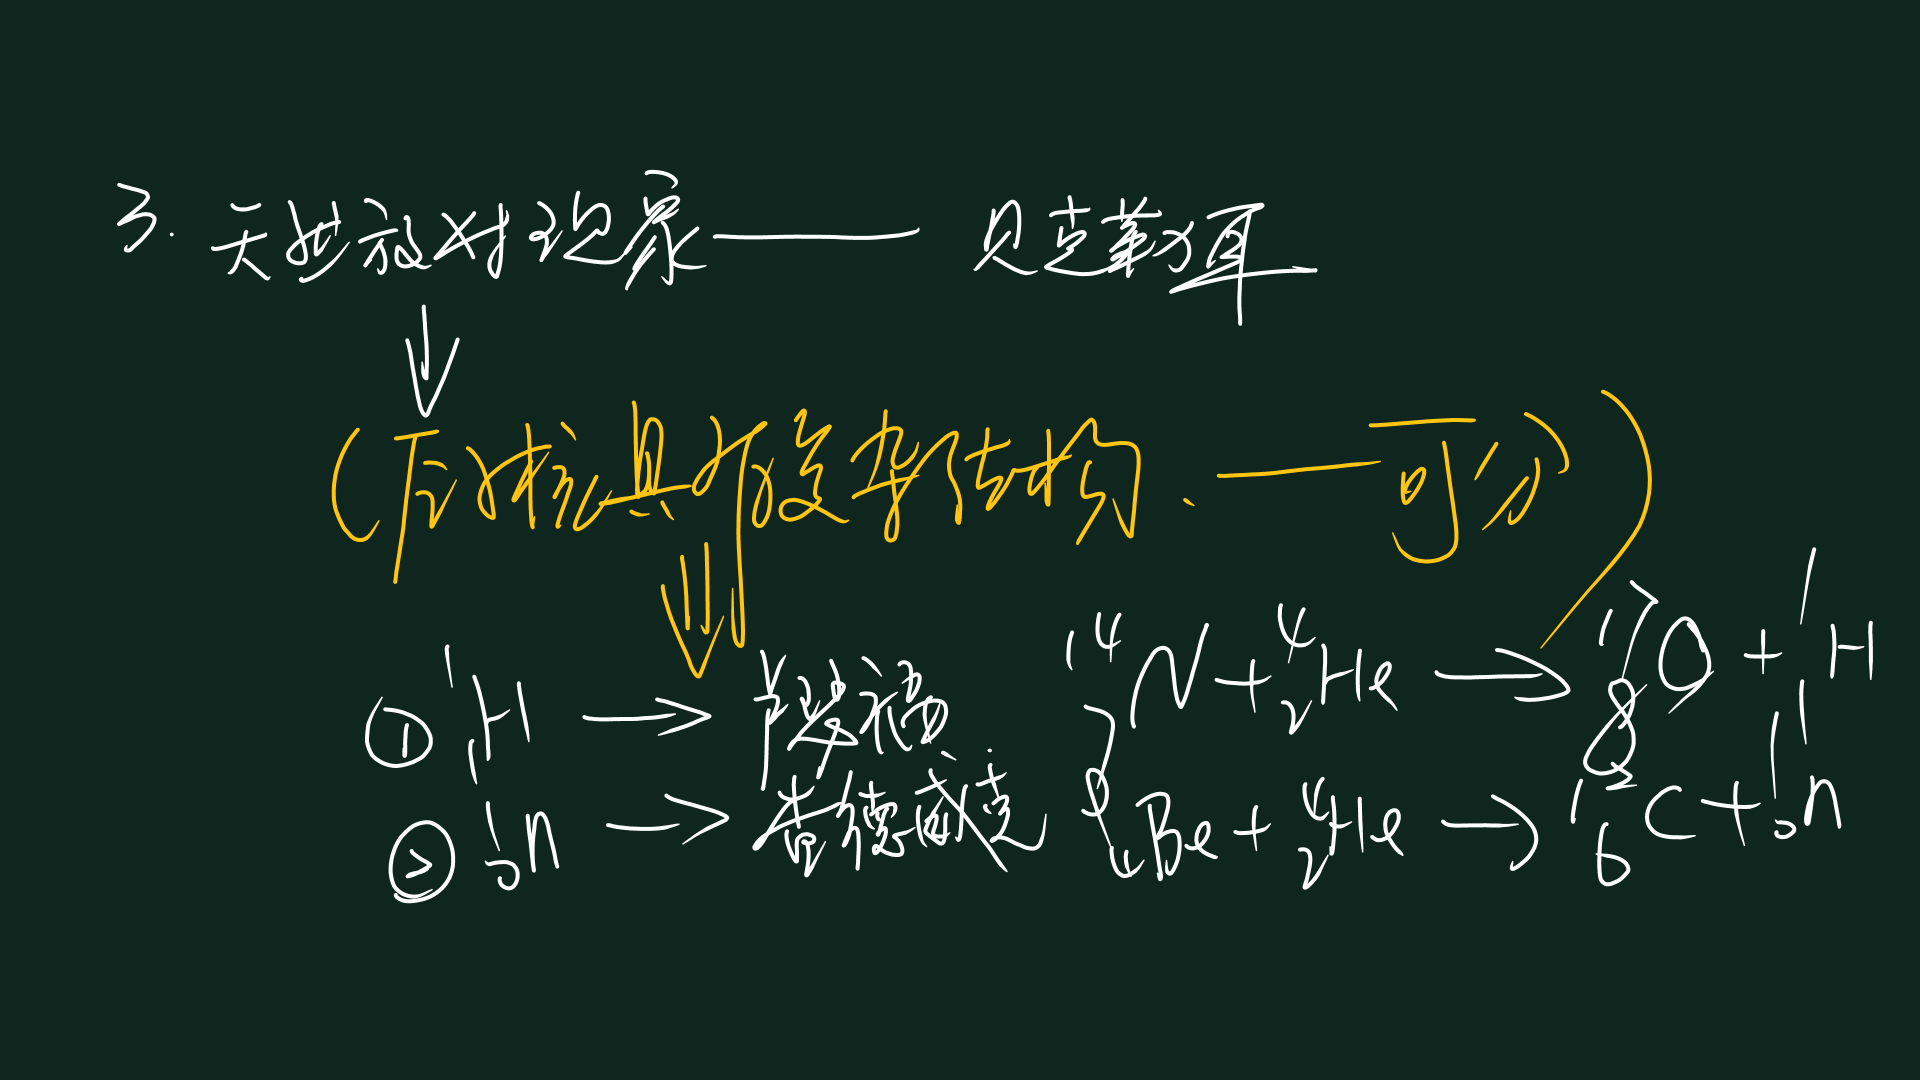 3. 天然放射现象 —— 贝克勒耳
↓
(原子核具有复杂结构. —— 可分)
⇓
① ¹₁H → 卢瑟福 ¹⁴₇N + ⁴₂He → ¹⁷₈O + ¹₁H
② ¹₀n → 查德威克 ⁹₄Be + ⁴₂He → ¹²₆C + ¹₀n